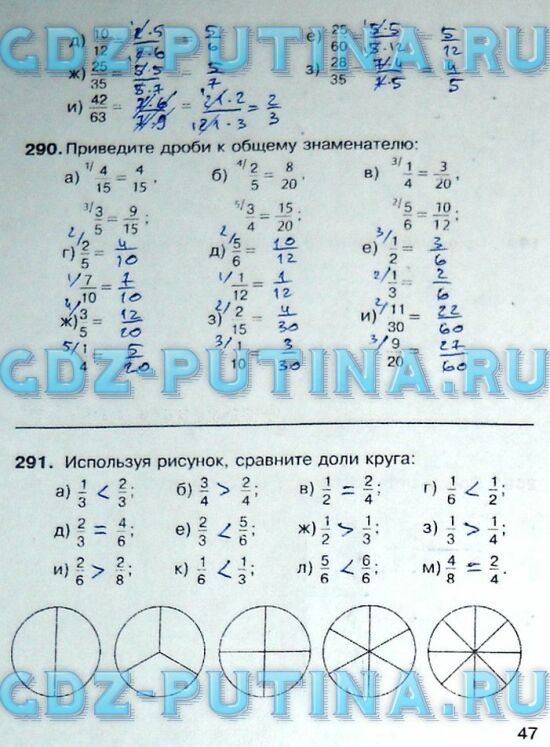 д) 10/12 = 2·5/2·6 = 5/6 е) 25/60 = 5·5/5·12 = 5/12
GDZ-PUTINA.RU
ж) 25/35 = 5·5/5·7 = 5/7 з) 28/35 = 7·4/7·5 = 4/5
и) 42/63 = 7·6/7·9 = 2·2/2·3 = 2/3
290. Приведите дроби к общему знаменателю:
а) 1/ 4/15 = 4/15, б) 4/ 2/5 = 8/20, в) 3/ 1/4 = 3/20,
3/ 3/5 = 9/15; 5/ 3/4 = 15/20; 2/ 5/6 = 10/12;
г) 2/ 2/5 = 4/10 д) 2/ 5/6 = 10/12 е) 3/ 1/2 = 3/6
GDZ-PUTINA.RU
1/ 7/10 = 7/10 1/ 1/12 = 1/12 2/ 1/3 = 2/6
ж) 4/ 3/5 = 12/20 з) 2/ 2/15 = 4/30 и) 2/ 11/30 = 22/60
5/ 1/4 = 5/20 3/ 1/10 = 3/30 3/ 9/20 = 27/60
GDZ-PUTINA.RU
291. Используя рисунок, сравните доли круга:
а) 1/3 < 2/3; б) 3/4 > 2/4; в) 1/2 = 2/4; г) 1/6 < 1/2;
д) 2/3 = 4/6; е) 2/3 < 5/6; ж) 1/2 > 1/3; з) 1/3 > 1/4;
GDZ-PUTINA.RU
и) 2/6 > 2/8; к) 1/6 < 1/3; л) 5/6 < 6/6; м) 4/8 = 2/4.
GDZ-PUTINA.RU
47